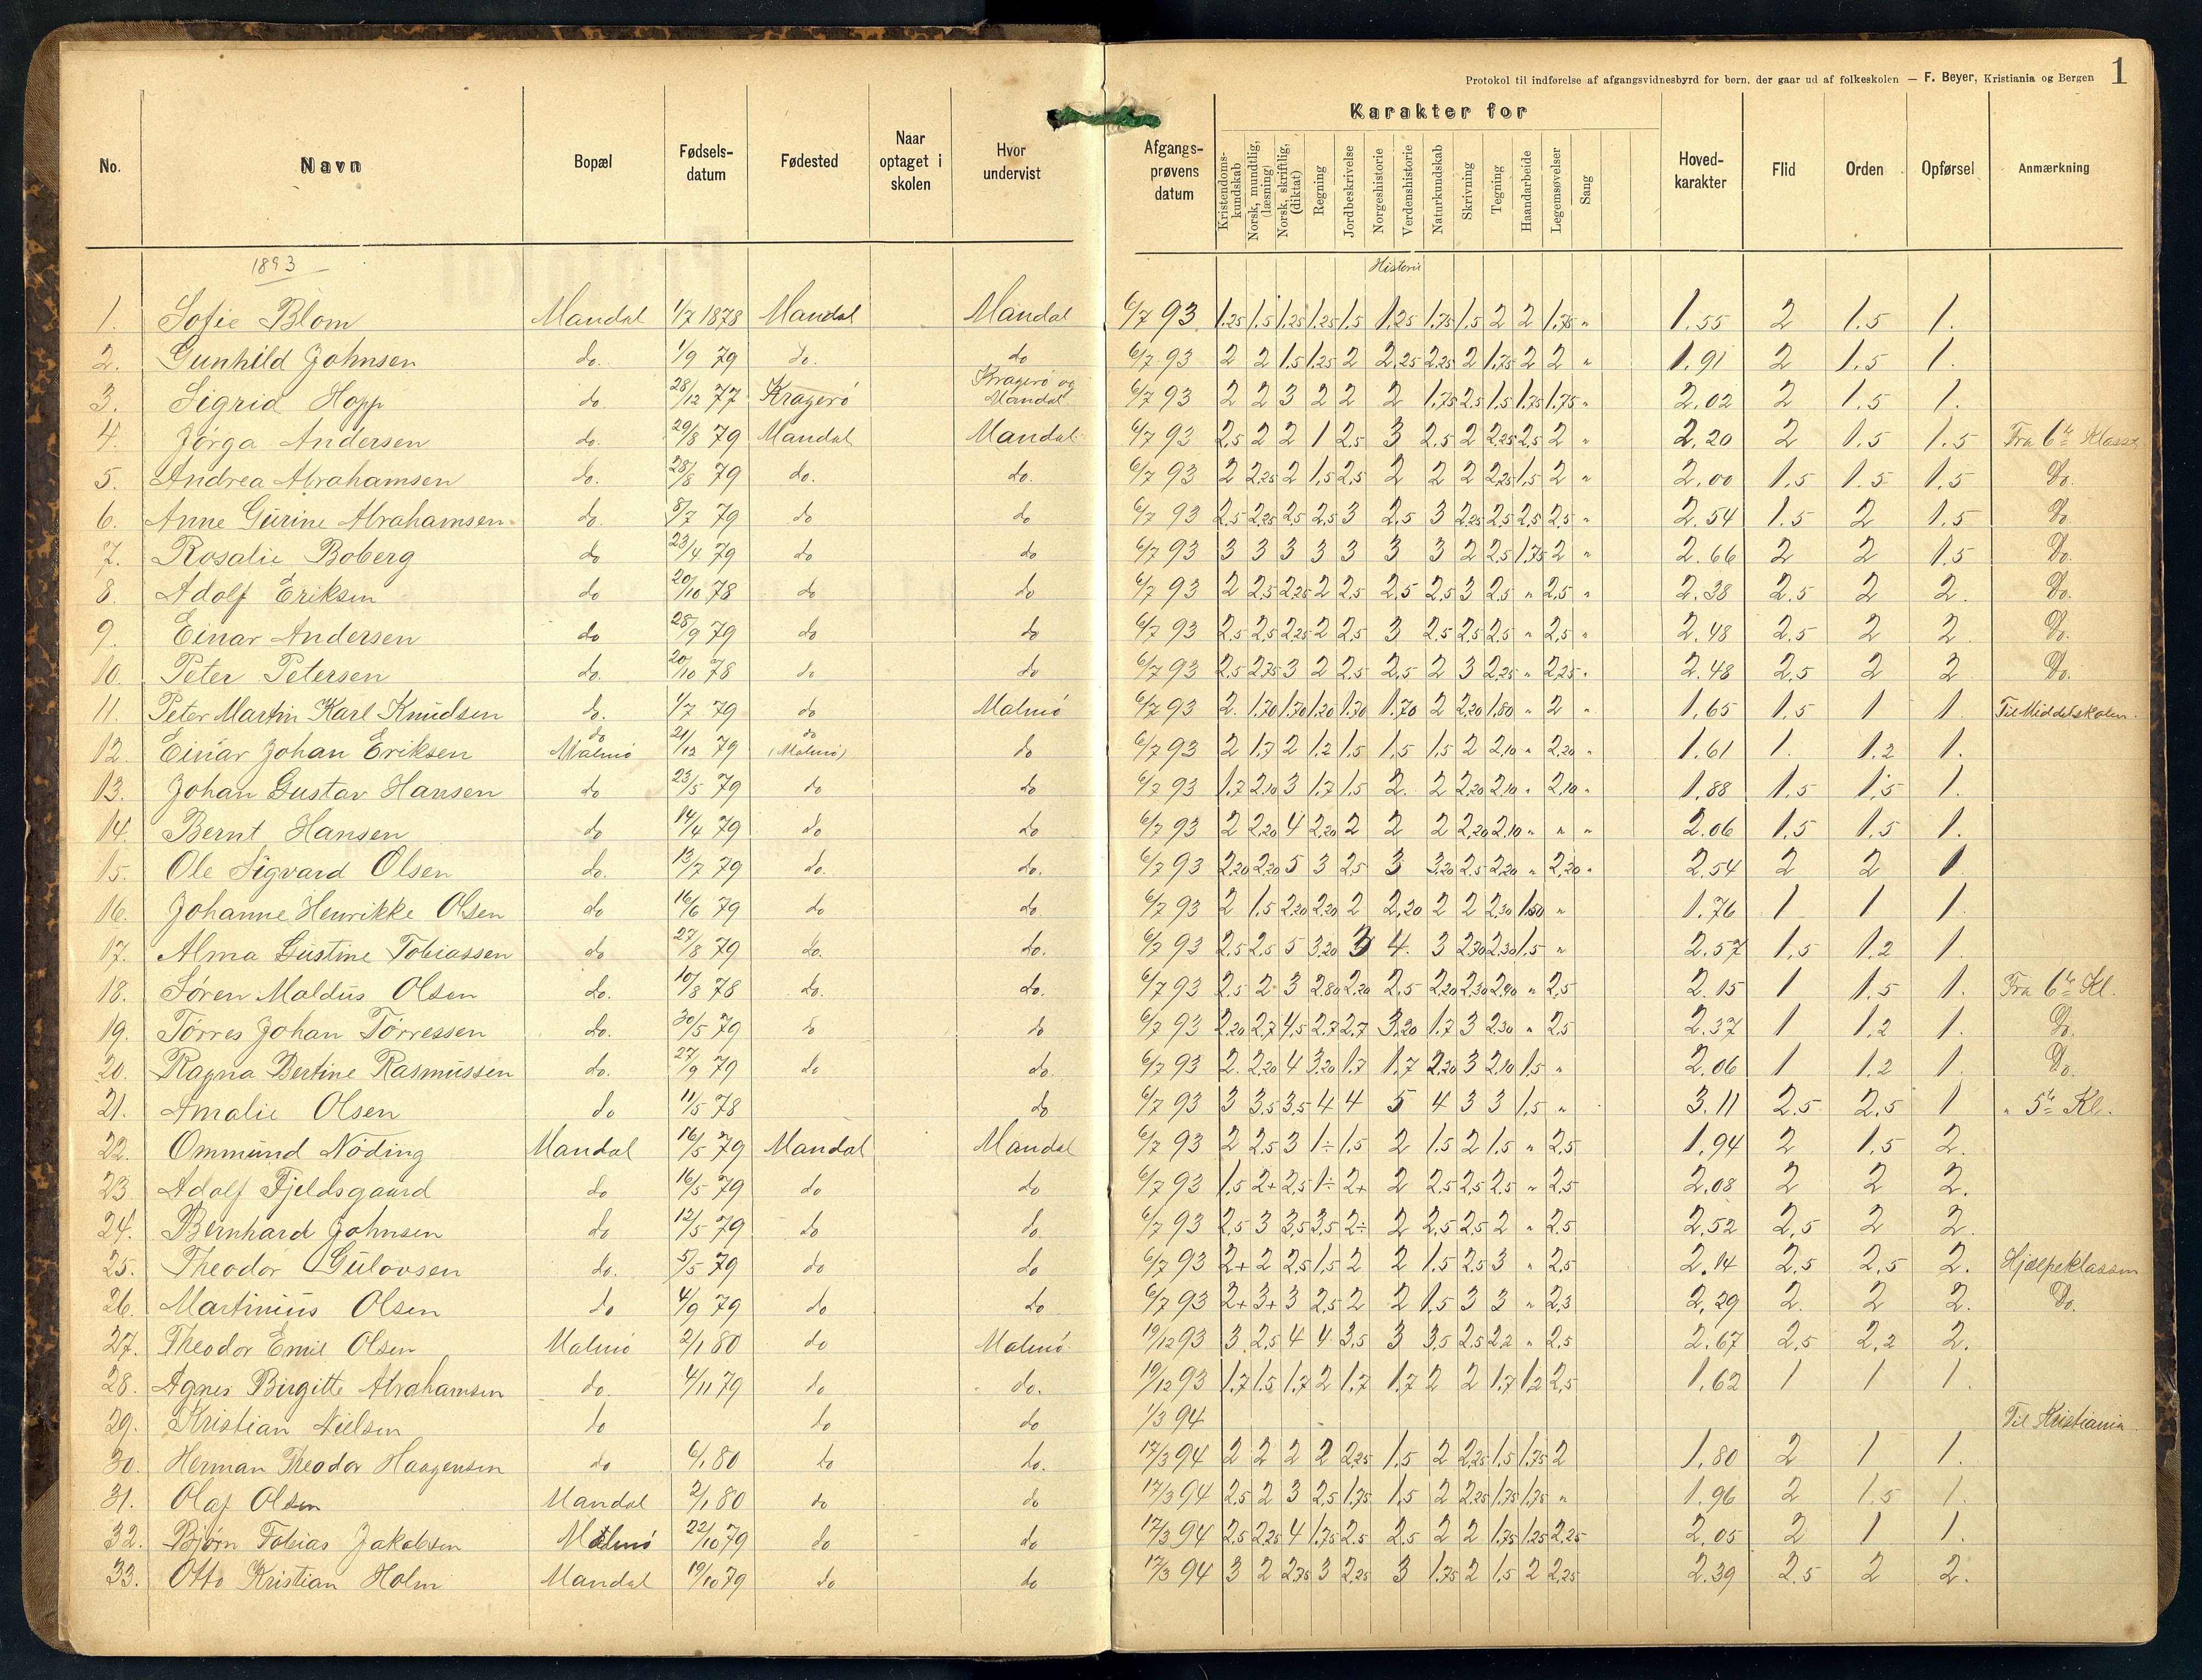 Protokol til indførelse af afgangsvidnesbyrd for børn, der gaar ud af folkeskolen — F. Beyer, Kristiania og Bergen 1
No. Navn Bopæl Fødsels-datum Fødested Naar optaget i skolen Hvor undervist Afgangs-prøvens datum Karakter for Hoved-karakter Flid Orden Opførsel Anmærkning
Kristendoms-kundskab Norsk, mundtlig, (læsning) Norsk, skriftlig, (diktat) Regning Jordbeskrivelse Norgeshistorie Verdenshistorie Naturkundskab Skrivning Tegning Haandarbeide Legemsøvelser Sang
1893 Historie
1. Sofie Blom Mandal 1/7 1878 Mandal Mandal 6/7 93 1.25 1.5 1.25 1.25 1.5 1.25 1.75 1.5 2 2 1.75 " 1.55 2 1.5 1.
2. Gunhild Johnsen do. 1/9 79 do. do 6/7 93 2 2 1.5 1.25 2 2.25 2.25 2 1.75 2 2 " 1.91 2 1.5 1.
3. Sigrid Hopp do 28/12 77 Kragerö Kragerö og Mandal 6/7 93 2 2 3 2 2 2 1.75 2.5 1.5 1.75 1.75 " 2.02 2 1.5 1.
4. Jörga Andersen do. 29/8 79 Mandal Mandal 6/7 93 2.5 2 2 1 2.5 3 2.5 2 2.25 2.5 2 " 2.20 2 1.5 1.5 Fra 6te Klasse
5. Andrea Abrahamsen do. 28/8 79 do. do. 6/7 93 2 2.25 2 1.5 2.5 2 2 2 2.25 1.5 2 " 2.00 1.5 1.5 1.5 Do.
6. Anne Gurine Abrahamsen do. 8/7 79 do do 6/7 93 2.5 2.25 2.5 2.5 3 2.5 3 2.25 2.5 2.5 2.5 " 2.54 1.5 2 1.5 Do.
7. Rosalie Boberg do 23/4 79 do do 6/7 93 3 3 3 3 3 3 3 2 2.5 1.75 2 " 2.66 2 2 1.5 Do.
8. Adolf Eriksen do 20/10 78 do do 6/7 93 2 2.5 2.25 2 2.5 2.5 2.5 3 2.5 " 2.5 " 2.38 2.5 2 2. Do.
9. Einar Andersen do 28/9 79 do do 6/7 93 2.5 2.5 2.25 2 2.5 3 2.5 2.5 2.5 " 2.5 " 2.48 2.5 2 2. Do.
10. Peter Petersen do. 20/10 78 do do 6/7 93 2.5 2.75 3 2 2.5 2.5 2 3 2.25 " 2.25 " 2.48 2.5 2 2 Do.
11. Peter Martin Karl Knudsen do. 1/7 79 do Malmö 6/7 93 2. 1.70 1.70 1.20 1.70 1.70 2 2.20 1.80 " 2 " 1.65 1.5 1 1. Til Middelskolen.
12. Einar Johan Eriksen do Malmö 21/12 79 do (Malmö) do 6/7 93 2 1.7 2 1.2 1.5 1.5 1.5 2 2.10 " 2.20 " 1.61 1. 1.2 1.
13. Johan Gustav Hansen do 23/5 79 do do 6/7 93 1.7 2.10 3 1.7 1.5 2. 2 2.20 2.10 " 2.10 " 1.88 1.5 1.5 1.
14. Bernt Hansen do 14/4 79 do do 6/7 93 2 2.20 4 2.20 2 2 2 2.20 2.10 " " " 2.06 1.5 1.5 1.
15. Ole Sigvard Olsen do. 13/7 79 do. do. 6/7 93 2.20 2.20 5 3 2.5 3 3.20 2.5 2.20 " 2.20 " 2.54 2 2 1
16. Johanne Henrikke Olsen do 16/6 79 do do. 6/7 93 2 1.5 2.20 2.20 2 2.20 2 2 2.30 1.50 " 1.76 1 1 1.
17. Alma Gustine Tobiassen do 27/8 79 do. do. 6/7 93 2.5 2.5 5 3.20 3 4. 3 2.70 2.30 1.5 " 2.57 1.5 1.2 1.
18. Sören Maldus Olsen do. 10/8 78 do. do. 6/7 93 2.5 2 3 2.80 2.20 2.5 2.20 2.30 2.90 " 2.5 2.15 1 1.5 1. Fra 6te Kl.
19. Törres Johan Törressen do. 30/5 79 do do 6/7 93 2.20 2.7 4.5 2.7 2.7 3.20 1.7 3 2.30 " 2.5 2.37 1 1.2 1. Do.
20. Ragna Bertine Rasmussen do. 27/9 79 do do. 6/7 93 2. 2.20 4 3.20 1.7 1.7 2.20 3 2.10 1.5 " 2.06 1 1.2 1. Do.
21. Amalie Olsen do 11/5 78 do 6/7 93 3 3.5 3.5 4 4 5 4 3 3 1.5 " 3.11 2.5 2.5 1 " 5te Kl.
22. Ommund Nöding Mandal 16/5 79 Mandal Mandal 6/7 93 2 2.5 3 1÷ 1.5 2 1.5 2 1.5 " 2.5 1.94 2 1.5 2.
23 Adolf Fjeldsgaard do 16/5 79 do do 6/7 93 1.5 2+ 2.5 1÷ 2+ 2 2.5 2.5 2.5 " 2.5 2.08 2 2 2.
24. Bernhard Johnsen do 12/5 79 do do. 6/7 93 2.5 3 3.5 3.5 2÷ 2 2.5 2.5 2 " 2.5 2.52 2.5 2 2
25. Theodor Gulovsen do. 5/5 79 do do 6/7 93 2+ 2 2.5 1.5 2 2 1.5 2.5 3 " 2.5 2.14 2.5 2.5 2. Hjælpeklassen
26. Martinius Olsen do 4/9 79 do do 6/7 93 2+ 3+ 3 2.5 2 2 1.5 3 3 " 2.3 2.29 2. 2 2. Do.
27. Theodor Emil Olsen Malmö 2/1 80 do Malmö 19/12 93 3 2.5 4 4 3.5 3 3.5 2.5 2.2 " 2.5 2.67 2.5 2.2 2.
28. Agnes Birgitte Abrahamsen do. 4/11 79 do do. 19/12 93 1.7 1.5 1.7 2 1.7 1.7 2 2 1.7 1.2 2.5 1.62 1 1 1.
29. Kristian Nielsen do do do 1/3 94 Til Kristiania
30. Herman Theodor Haagensen do 6/1 80 do do. 17/3 94 2 2 2 2 2.25 1.5 2 2.25 1.5 1.75 2 1.80 2 1 1.
31. Olaf Olsen Mandal 2/1 80 do do 17/3 94 2.5 2 3 2.5 1.75 1.5 2 2.25 1.75 1.75 " 1.96 2 1.5 1.
32. Bjørn Tobias Jakobsen Malmö 22/10 79 do do 17/3 94 2.5 2.25 4 1.75 2.5 2.5 2 2 1.75 1.25 2.25 2.05 2 1 1.
33. Otto Kristian Holm Mandal 19/10 79 do do 17/3 94 3 2 2.75 3 2.25 3 1.75 2 1.5 2 2.25 2.39 2.5 2 2.